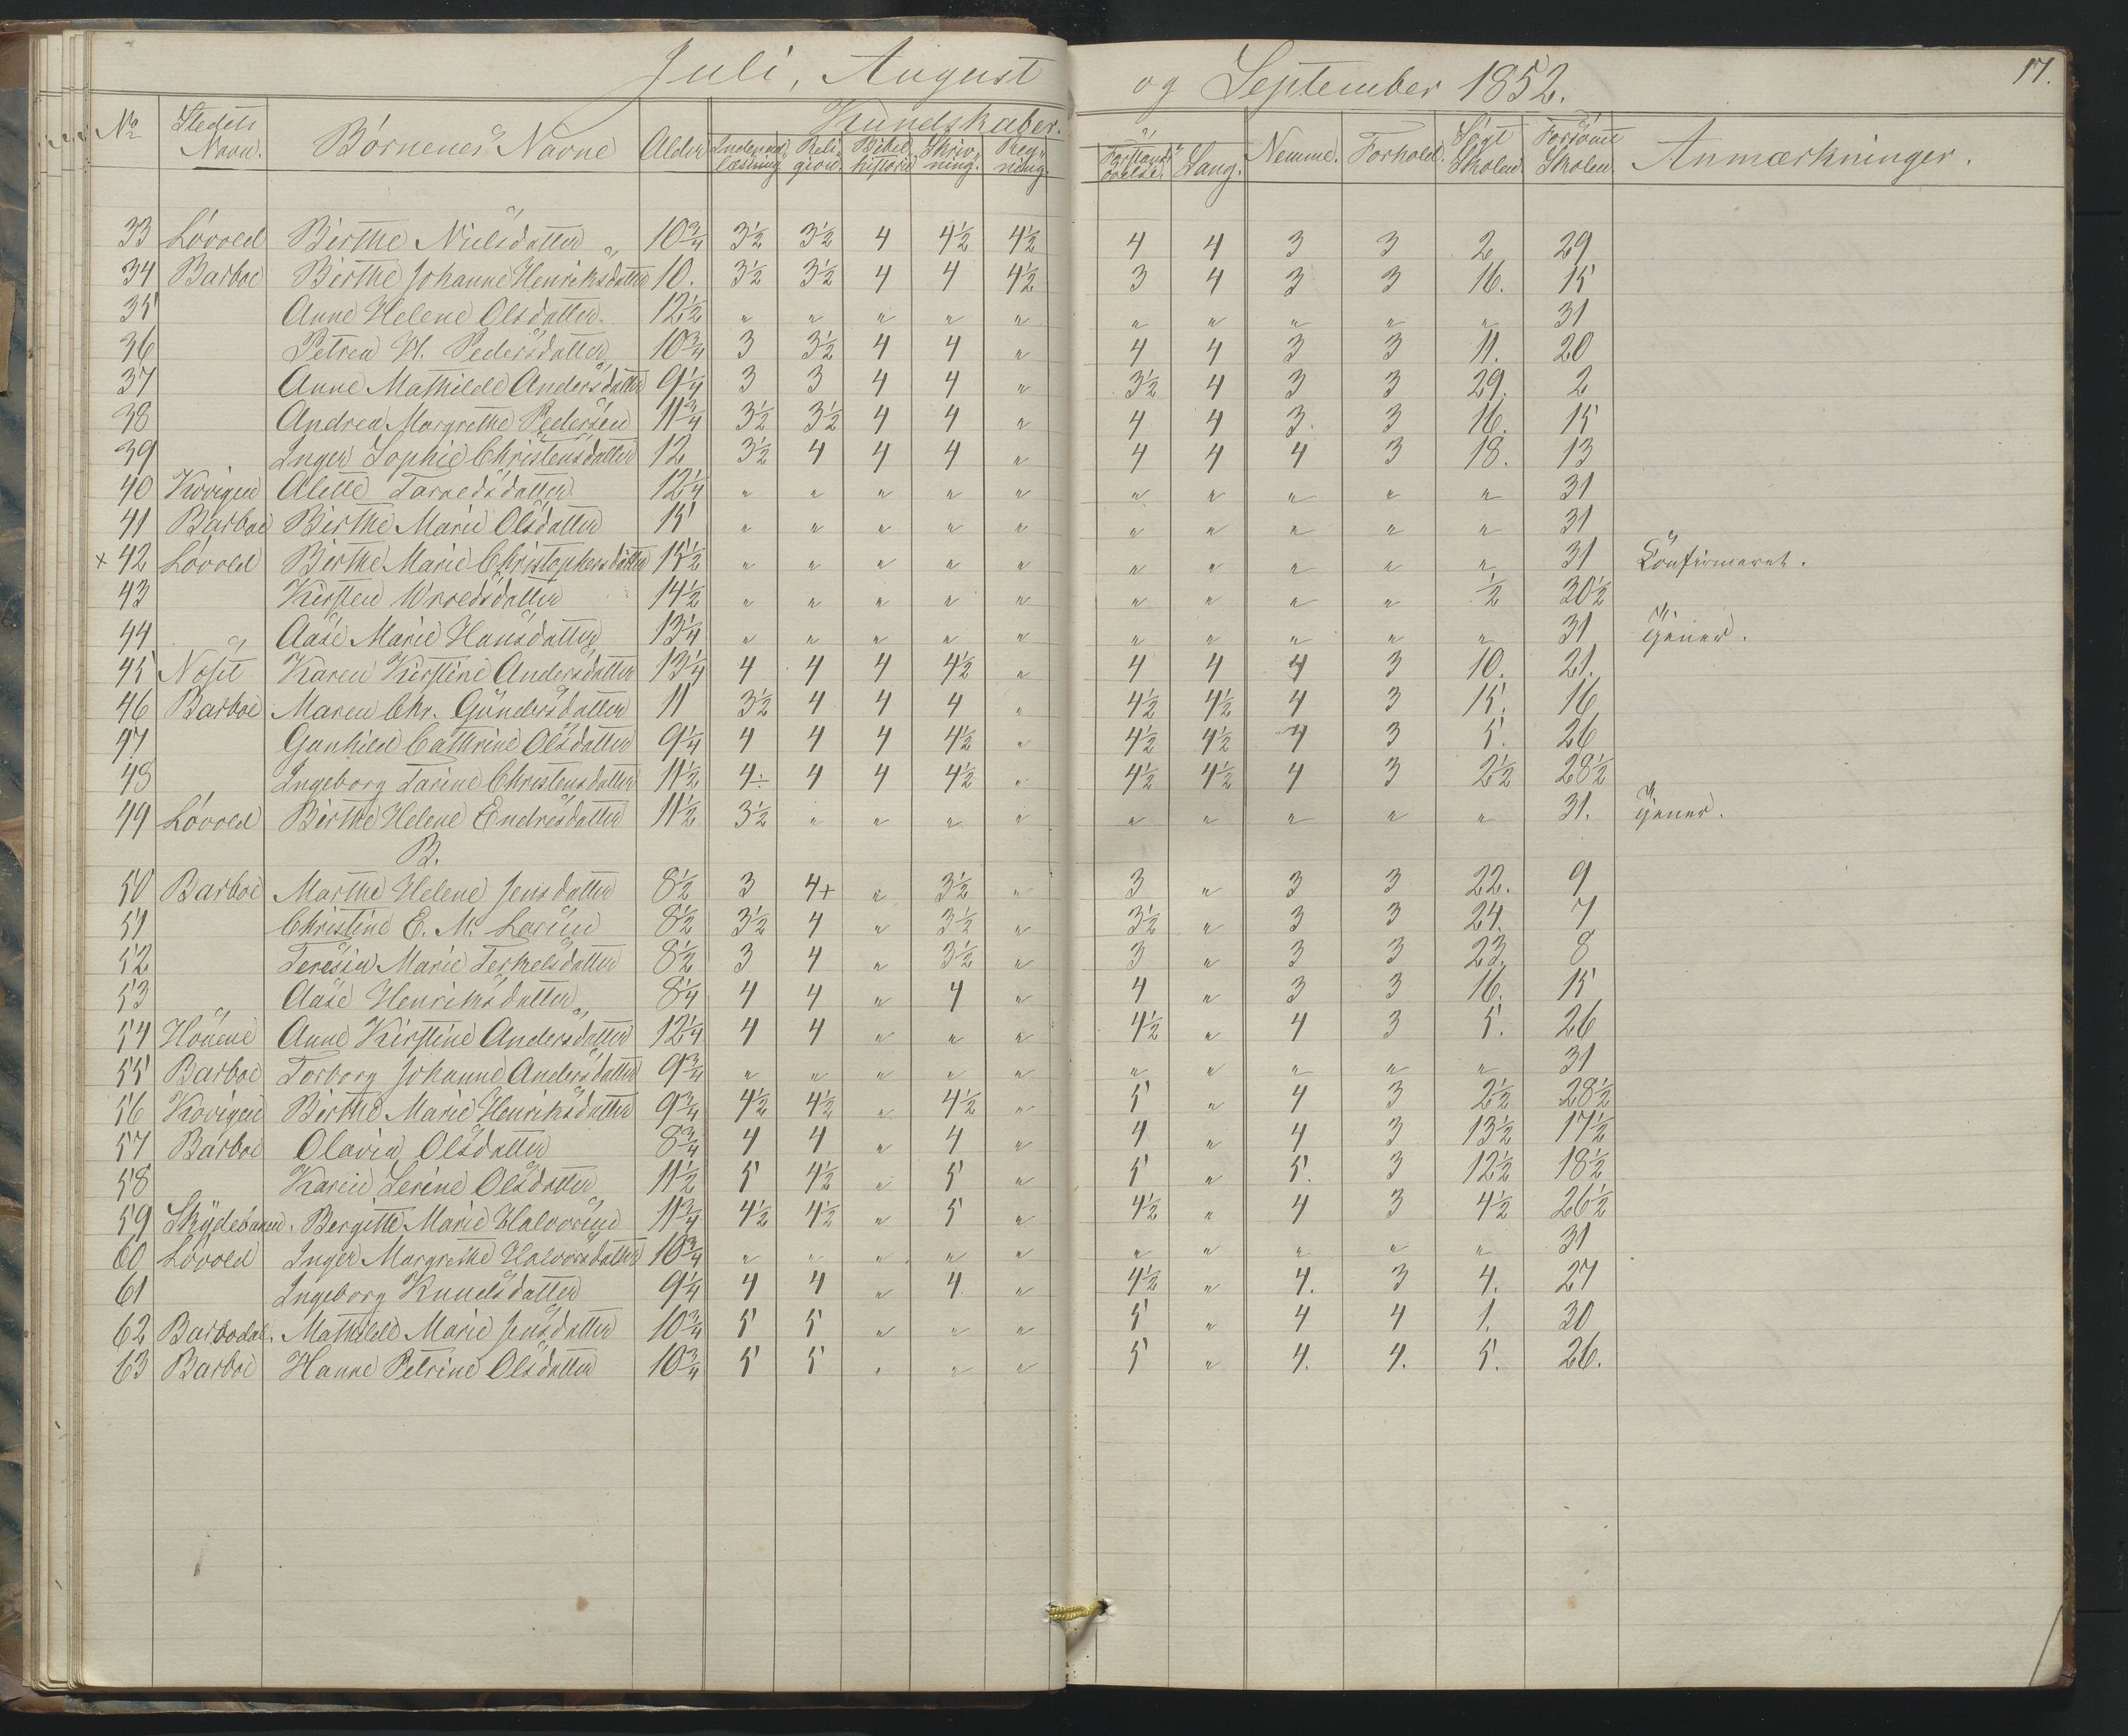 Juli, August og September 1852. 17.
No Stedets Navn. Børnenes Navne Alder Kundskaber. Nemme. Forhold. Søgt Skolen. Forsømt Skolen. Anmærkninger.
Indenadlæsning Religion. Bibelhistorie Skrivning. Regning. Forstandsøvelse. Sang.
33 Lóvold Birthe Nielsdatter 10¾ 3½ 3½ 4 4½ 4½ 4 4 3 3 2 29
34 Barboe Birthe Johanne Henriksdatter 10. 3½ 3½ 4 4 4½ 3 4 3 3 16. 15
35 Anne Helene Olsdatter 12½ " " " " " " " " " " 31
36 Petrea H. Pedersdatter 10¾ 3 3½ 4 4 " 4 4 3 3 11. 20
37 Anne Mathilde Andersdatter 9¼ 3 3 4 4 " 3½ 4 3 3 29. 2
38 Andrea Margrethe Pedersen 11¾ 3½ 3½ 4 4 " 4 4 3. 3 16. 15
39 Inger Sophie Christensdatter 12 3½ 4 4 4 " 4 4 4 3 18. 13
40 Kovigen Alette Taraldsdatter 12¼ " " " " " " " " " " 31
41 Barboe Birthe Marie Olsdatter 15 " " " " " " " " " " 31
× 42 Lóvold Birthe Marie Christophersdatter 15½ " " " " " " " " " " 31 Confirmeret.
43 Kirsten 14½ " " " " " " " " " ½ 30½
44 " Aase Marie Hansdatter 13¼ " " " " " " " " " " 31
45 Karen Kirstine Andersdatter 13¼ 4 4 4 4½ " 4 4 4 3 10. 21.
46 Barboe Maren Chr. Gundersdatter 11 3½ 4 4 4 " 4½ 4½ 4 3 15. 16
47 Gunhild Cathrine Olsdatter 9¼ 4 4 4 4½ " 4½ 4½ 4 3 5. 26
48 Ingeborg Tarine Christensdatter 11½ 4÷ 4 4 4½ " 4½ 4½ 4 3 2½ 28½
49 Lóvold Birthe Helene Endresdatter 11½ 3½ " " " " " " " " " 31.
B.
50 Barboe Marthe Helene Jensdatter 8½ 3 4+ " 3½ " 3 " 3 3 22. 9
51 Christine E. M. Larsen 8½ 3½ 4 " 3½ " 3½ " 3 3 24. 7
52 Teresia Marie Terkelsdatter 8½ 3 4 " 3½ " 3 " 3 3 23. 8
53 Aase Henriksdatter 8¼ 4 4 " 4 " 4 " 3 3 16. 15
54 Anne Kirstine Andersdatter 12¼ 4 4 " " " 4½ " 4 3 5. 26
55 Barboe Torborg Johanne Andersdatter 9¾ " " " " " " " " " " 31
56 Kovigen Birthe Marie Henriksdatter 9¾ 4½ 4½ " 4½ " 5 " 4 3 2½ 28½
57 Barboe Olavia Olsdatter 8¾ 4 4 " 4 " 4 " 4 3 13½ 17½
58 Karen Serine Olsdatter 11½ 5 4½ " 5 " 5 " 5. 3 12½ 18½
59 Skydebanen. Bergitte Marie Halvorsen 11¾ 4½ 4½ " 5 " 4½ " 4 3 4½ 26½
60 Lóvold Inger Margrethe Halvorsdatter 10¾ " " " " " " " " " " 31
61 Ingeborg Knudsdatter 9¼ 4 4 " 4 " 4½ " 4. 3 4. 27
62 Barbodal. Mathilde Marie Jensdatter 10¾ 5 5 " " " 5 " 4 4 1. 30
63 Barboe Hanne Petrine Olsdatter 10¾ 5 5 " " " 5 " 4. 4. 5. 26.